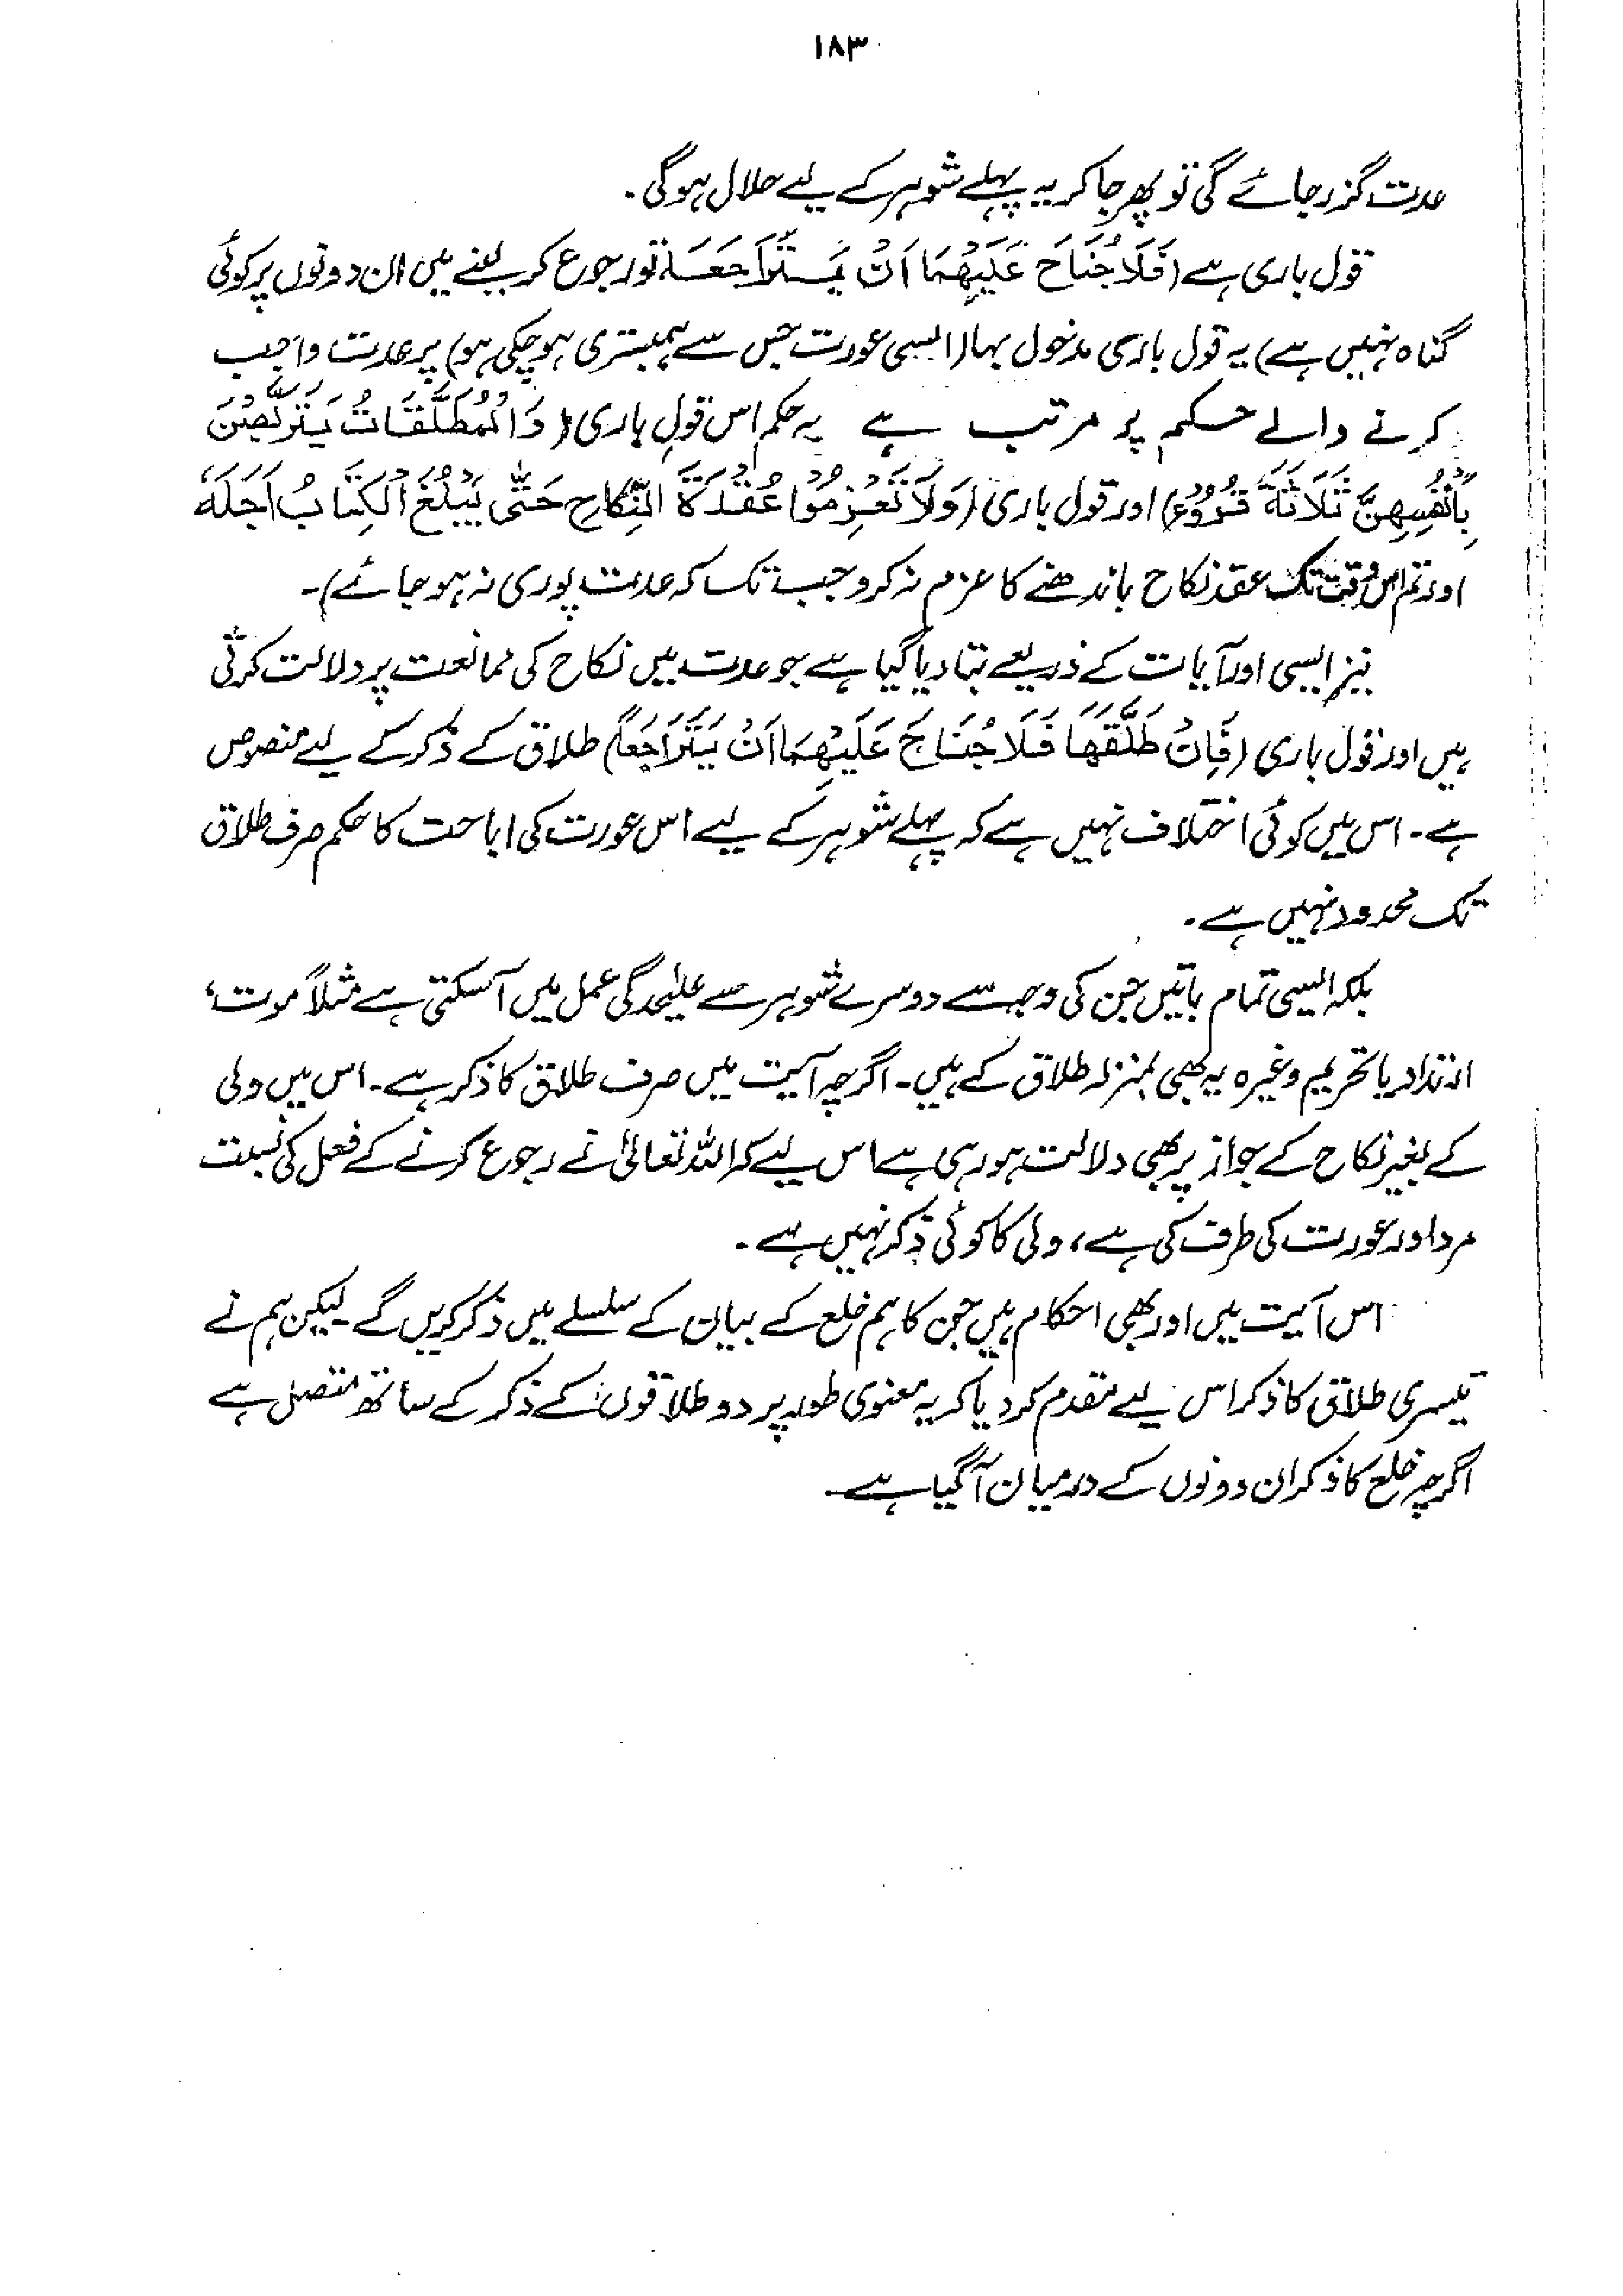 ۱۸۳
عدت گزر جائے گی تو پھر جا کر یہ پہلے شوہر کے لیے حلال ہوگی۔
قول باری ہے (فَلَا جُنَاحَ عَلَيْهِمَا اَنْ يَّتَرَاجَعَا تو رجوع کر لینے میں ان دونوں پر کوئی
گناہ نہیں ہے) یہ قول باری مدخول بہا (ایسی عورت جس سے ہمبستری ہو چکی ہو) پر عدت واجب
کرنے والے حکم پر مرتب ہے یہ حکم اس قولِ باری (وَالْمُطَلَّقَاتُ يَتَرَبَّصْنَ
بِأَنْفُسِهِنَّ ثَلَاثَةَ قُرُوْءٍ) اور قول باری (وَلَا تَعْزِمُوْا عُقْدَةَ النِّكَاحِ حَتّٰى يَبْلُغَ الْكِتَابُ اَجَلَهٗ
اور تم اس وقت تک عقد نکاح باندھنے کا عزم نہ کرو جب تک کہ عدت پوری نہ ہو جائے)۔
نیز ایسی اور آیات کے ذریعے بتا دیا گیا ہے جو عدت میں نکاح کی ممانعت پر دلالت کرتی
ہیں اور قول باری (فَاِنْ طَلَّقَهَا فَلَا جُنَاحَ عَلَيْهِمَا اَنْ يَّتَرَاجَعَا) طلاق کے ذکر کے لیے منصوص
ہے۔ اس میں کوئی اختلاف نہیں ہے کہ پہلے شوہر کے لیے اس عورت کی اباحت کا حکم صرف طلاق
تک محدود نہیں ہے۔
بلکہ ایسی تمام باتیں جن کی وجہ سے دوسرے شوہر سے علیٰحدگی عمل میں آسکتی ہے مثلاً موت،
ارتداد یا تحریم وغیرہ یہ بھی بمنزلہ طلاق کے ہیں۔ اگرچہ آیت میں صرف طلاق کا ذکر ہے۔ اس میں ولی
کے بغیر نکاح کے جواز پر بھی دلالت ہو رہی ہے اس لیے کہ اللہ تعالیٰ نے رجوع کرنے کے فعل کی نسبت
مرد اور عورت کی طرف کی ہے، ولی کا کوئی ذکر نہیں ہے۔
اس آیت میں اور بھی احکام ہیں جن کا ہم خلع کے بیان کے سلسلے میں ذکر کریں گے۔ لیکن ہم نے
تیسری طلاق کا ذکر اس لیے مقدم کر دیا کہ یہ معنوی طور پر دو طلاقوں کے ذکر کے ساتھ متصل ہے
اگرچہ خلع کا ذکر ان دونوں کے درمیان آگیا ہے۔